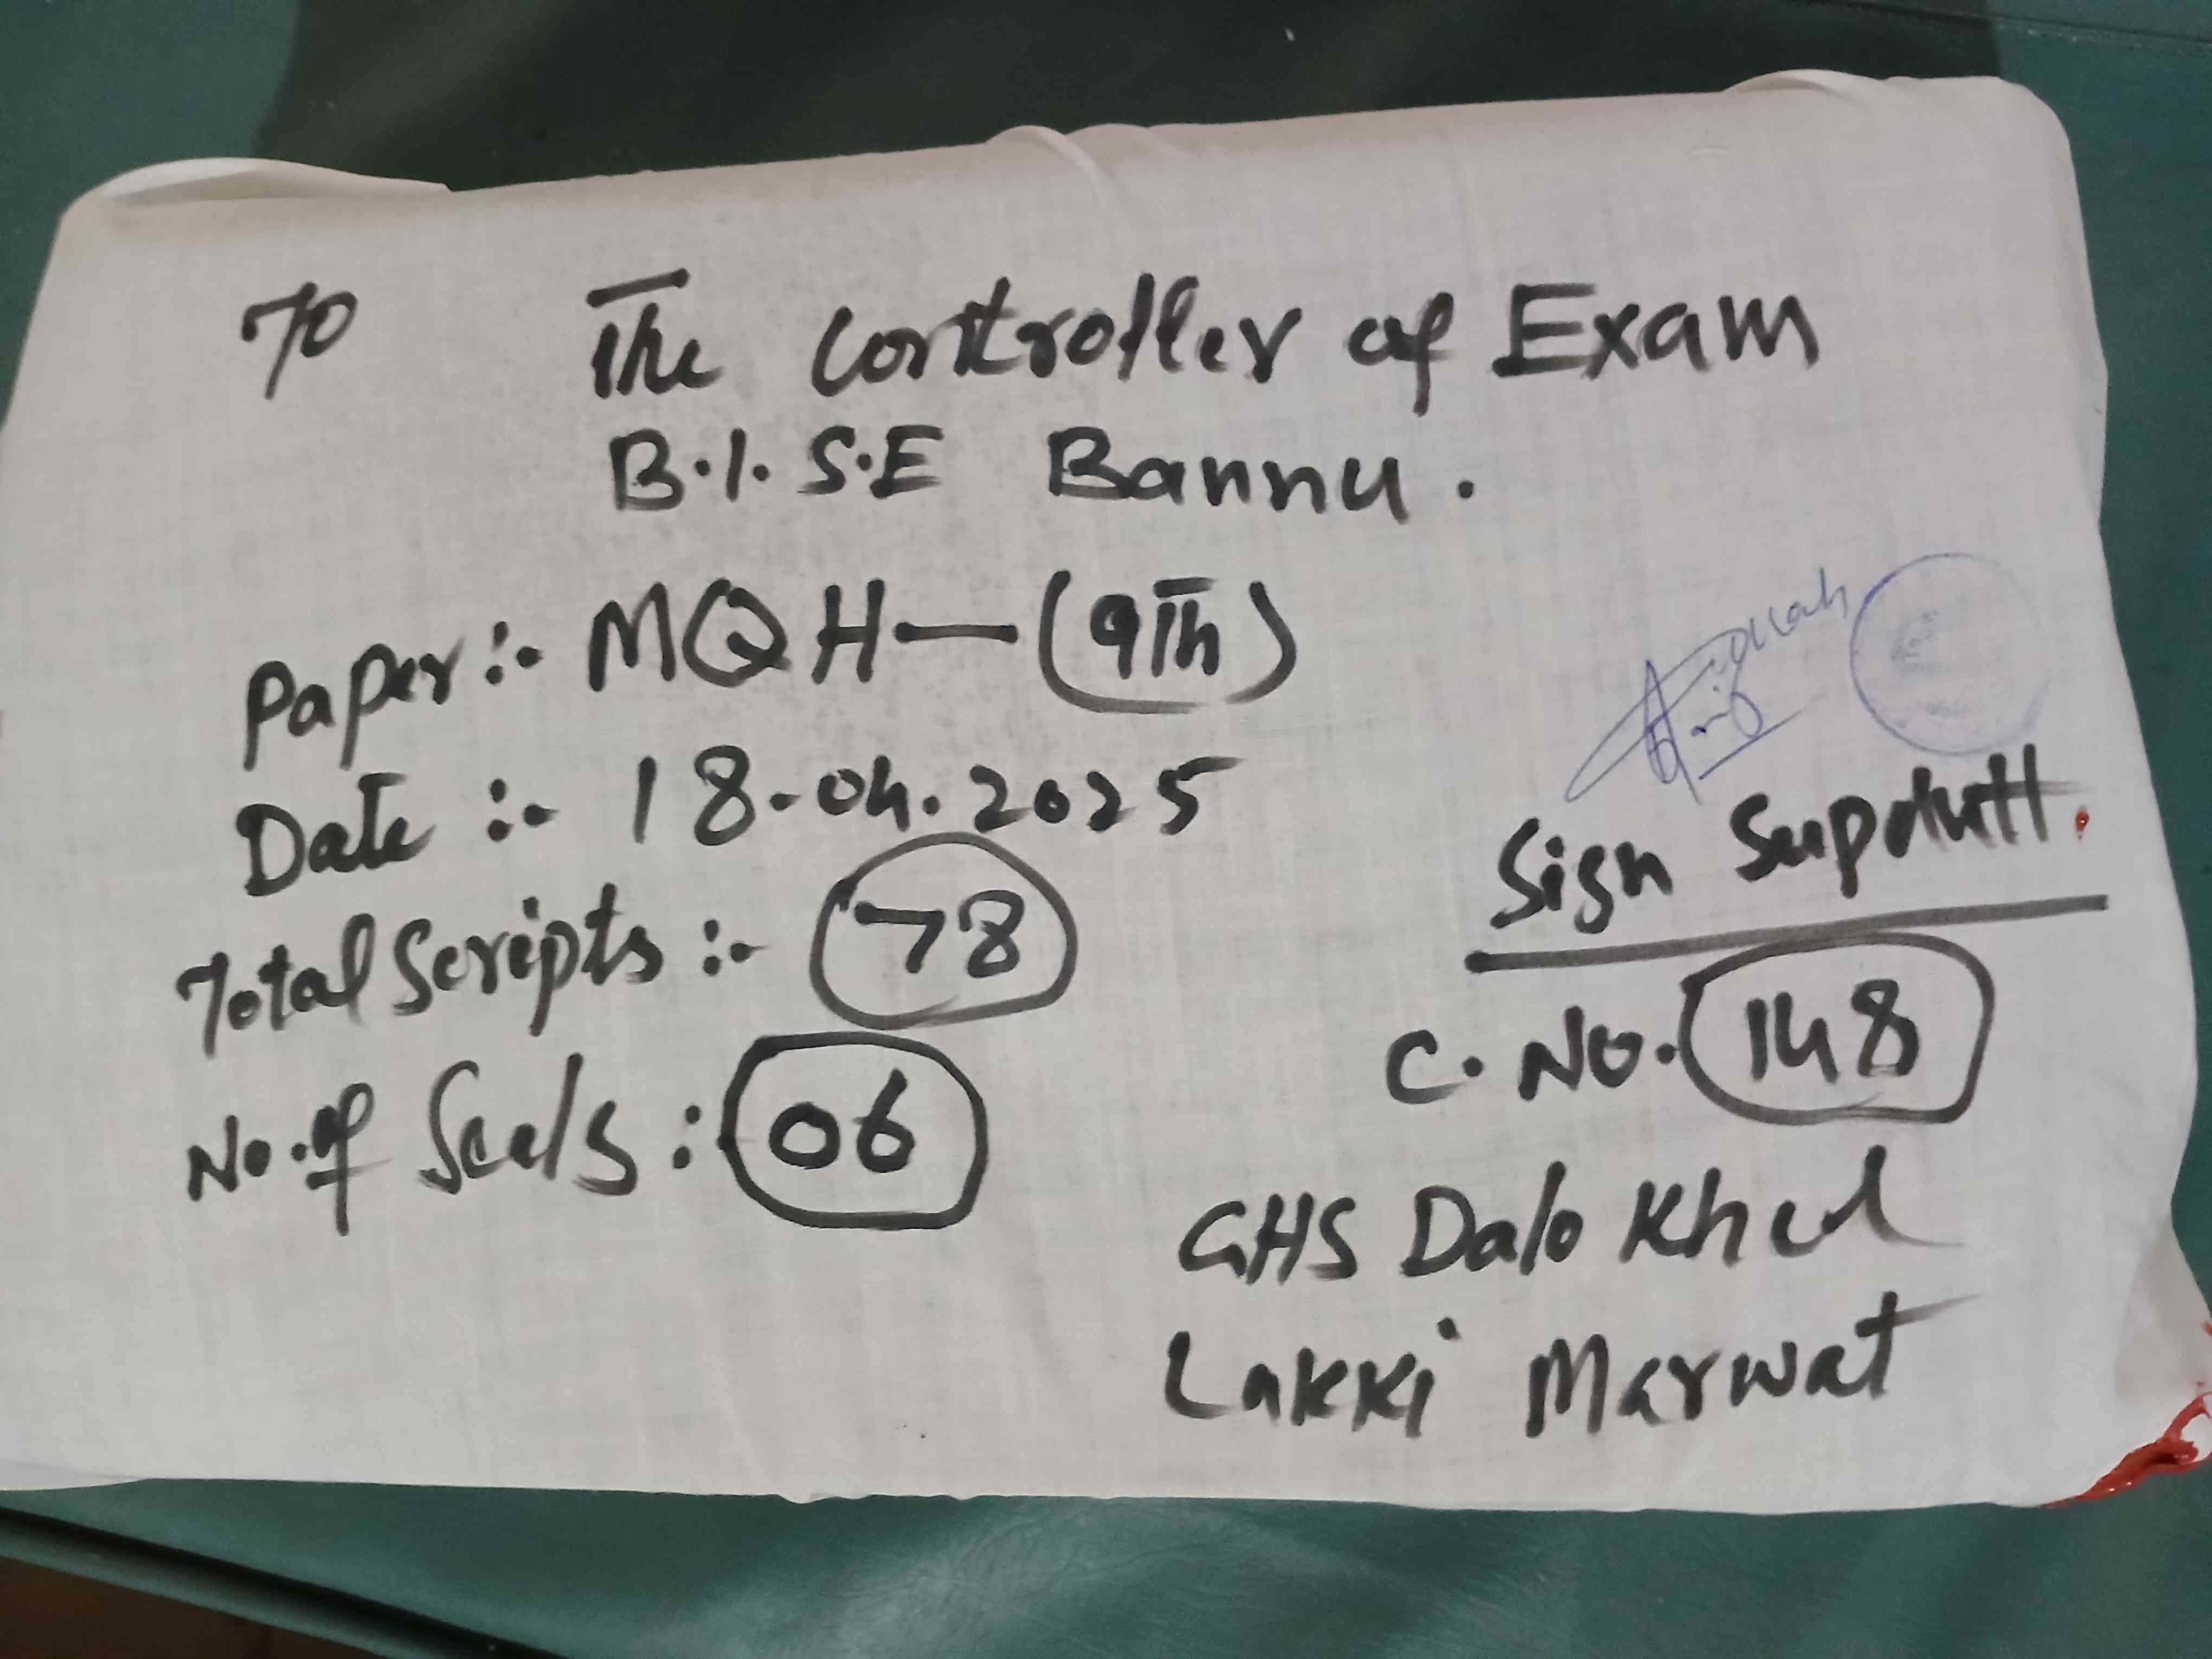 To The Controller of Exam
B.I.S.E Bannu.
Paper:- MQH—(9Th)
Date:- 18-04.2025
Total Scripts:- 78
No. of Seals: 06
Sign Supdntt.
C. No. 148
GHS Dalo Khel
Lakki Marwat